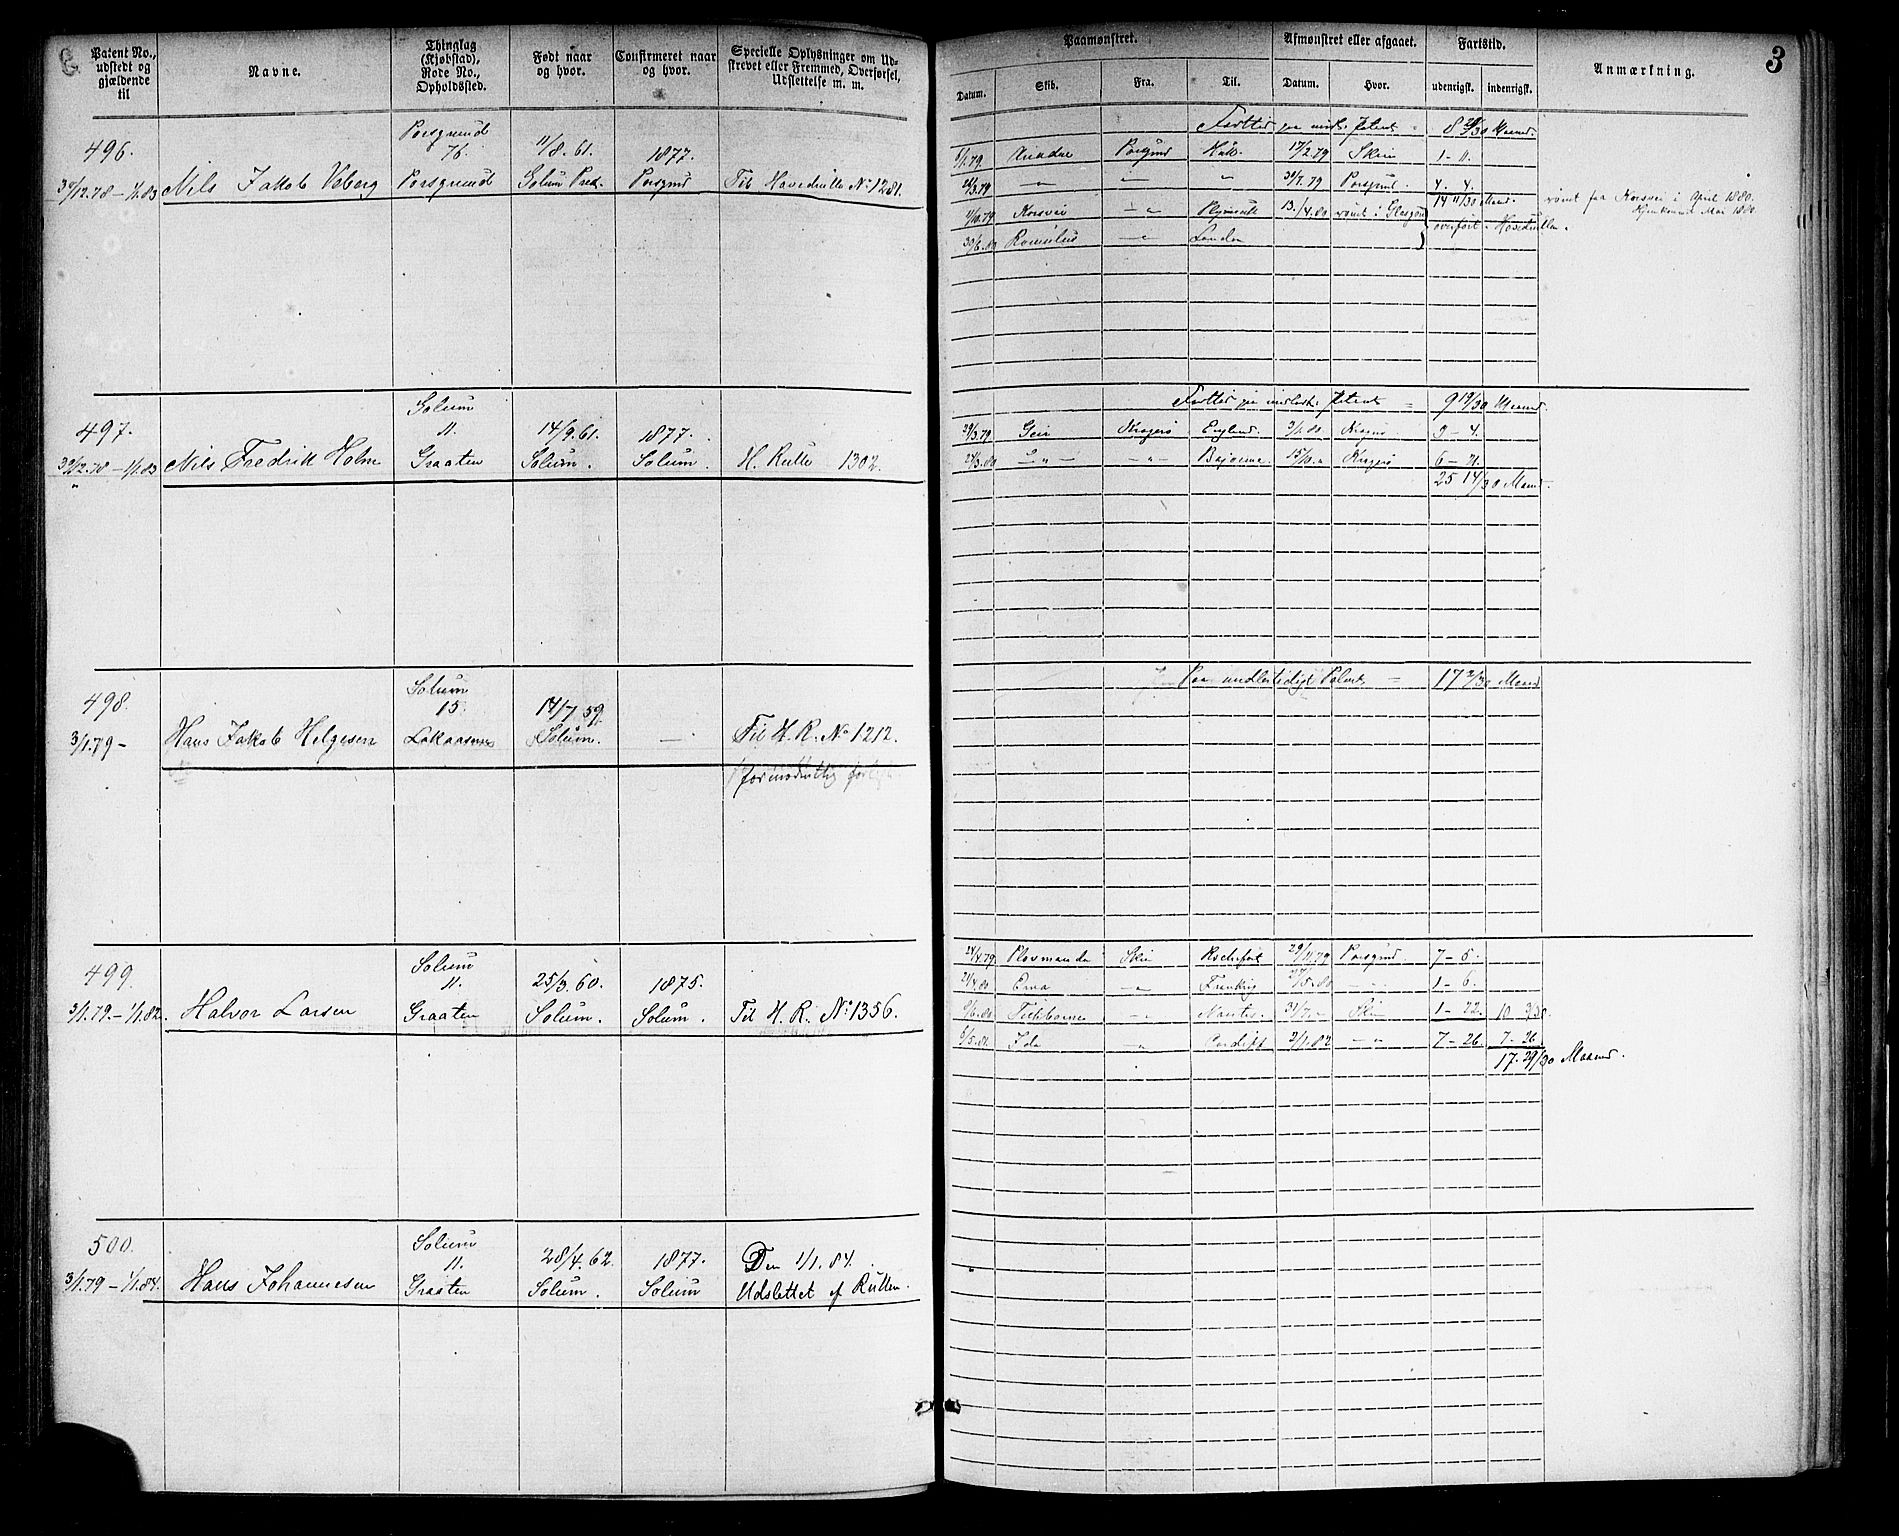 Patent No., udstedt og gjældende til
Navne.
Thinglag (Kjøbstad), Rode No., Opholdssted.
Født naar og hvor.
Confirmeret naar og hvor.
Specielle Oplysninger om Udstrevet eller Fremmed, Overførsel, Udslettelse m. m.
Paamønstret.
Afmønstret eller afgaaet.
Fartstid.
Anmærkning.
3
Datum.
Skib.
Fra.
Til.
Datum.
Hvor.
udenrigsk.
indenrigsk.
496.
Porsgrund 76.
11/8. 61.
1877.
30/12.78 – 1/1.83
Nils Jakob Veberg
Porsgrund
Solum Præst.
Porsgrund
Til Hovedrulle No 1281.
8 28/30 Maaned.
6/1.79.
Ariadne
Porsgrund
Hull
17/2.79
Skien
1 - 11.
24/3.79
30/7.79
Porsgrund.
4. 4.
14 11/30 Maaned.
1/10.79
Korsvei
Plymouth
13./4.80
rømt i Glasgow
rømt fra Korsvei i April 1880.
Hjemkommet Mai 1880.
30/6.80
Romulus
London
overført Hovedrullen.
497.
Solum 11.
14/9.61.
1877.
30/12.78 – 1/1.83
Nils Fredrik Holm
Graaten
Solum.
Solum.
H. Rulle 1302.
9 19/30 Maaned.
29/3.79
Geir
Kragerø
England.
2/1.80
Kragerø
9 - 4.
24/3.80
Bajonne
15/10.
Kragerø
6 - 21.
25 14/30 Maaned.
498.
Solum 15.
14/7 59.
3/1.79 –
Hans Jakob Helgesen
Solum.
Til H. R. No 1212.
formodentlig
Paa midlertidigt Patent =
17 2/30 Maaned
499.
Solum 11.
25/3.60.
1875.
3/1.79. – 1/1.82.
Halvor Larsen
Graaten
Solum.
Solum.
Til H. R. No 1356.
24/4.79.
Skien
Rochefort
29/11.79
Porsgrund
7 - 5.
21/4.80
27/5.80
1 - 6.
Nantes.
31/7.
Skien
1 - 22.
10 3/30.
6/5.81.
Ida
Cardiff
2/1.82
7 - 26.
7 - 26.
17. 29/30 Maaned.
500.
Solum 11.
28/4.62.
1877.
Den 1/1.84.
3/1.79 – 1/1.84.
Hans Johannesen
Graaten
Solum.
Solum
Udslettet af Rullen.